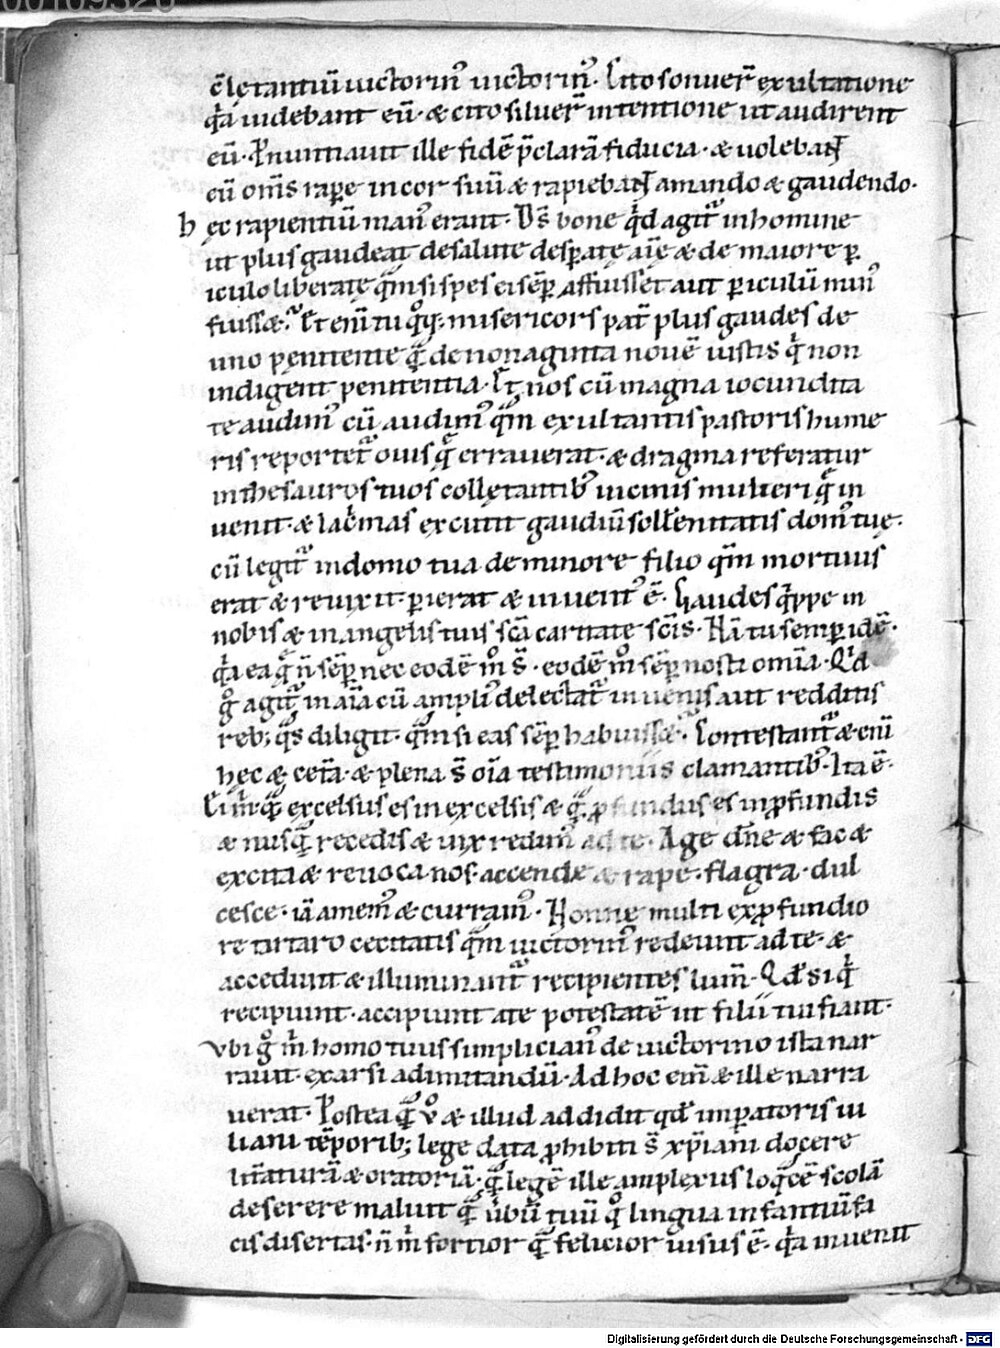 00109326
c̄letantiū uictorin᷒ uictorin᷒. Cito sonuer̄ exultatione
qͥa uidebant eū. & cito siluer̄ intentione ut audirent
eū. Ꝓnuntiauit ille fidē p̄clarā fiducia. & uolebant
eū om̄s rape in cor suū & rapiebant amando & gaudendo.
hęc rapientiū man᷒ erant. Ds̄ bone qͥd agit᷑ in homine
ut plus gaudeat de salute desꝑatę aīę & de maiore ꝑ
iculo liberatę qm̄ si spes ei sēꝑ affuisset aut ꝑiculū min᷒
fuiss&. Et enī tu qͦq; misericors pat̄ plus gaudes de
uno penitente qͣ de nonaginta nouē iustis qͥ non
indigent penitentia. Et nos cū magna iocundita
te audim᷒ cū audim᷒ qͣm exultantis pastoris hume
ris reportet᷑ ouis qͣ errauerat. & dragma referatur
in thesauros tuos collętantib᷒ uicinis mulieri qͣ in
uenit. & lacͥmas excutit gaudiū sollēnitatis dom᷒ tuę.
cū legit᷑ in domo tua de minore filio qm̄ mortuus
erat & reuixit. ꝑierat & inuent᷒ ē. Gaudes qͥppe in
nobis & in angelis tuis scā caritate scīs. Nā tu semꝑ idē.
qͥa ea qͣ ñ sēꝑ nec eodē mͦ s̄. eodē mͦ sēꝑ nosti omīa. Qͥd
gͦ agit᷑ in aīa cū ampli᷒ delectat᷑ inuentis aut redditis
reb; qͣs diligit. qͣm si eas sēꝑ habuiss&. Contestant᷑ & enī
hęc & cet̄a. & plena s̄ oīa testimoniis clamantib᷒. Ita ē.
Ei mͥ qͣ excelsus es in excelsis & qͣ ꝓfundus es in ꝓfundis
& nusqͣ recedis & uix redim᷒ ad te. Age dn̄e & fac &
excita & reuoca nos. accende & rape. flagra. dul
cesce. iā amem᷒ & curram᷒. Nonne multi ex ꝓfundio
re tartaro cecitatis qͣm uictorin᷒ redeunt ad te. &
accedunt & illuminant᷑ recipientes lum̄. Qd̄ si qͥ
recipiunt. accipiunt a te potestatē ut filii tui fiant.
Vbi gͦ mͥ homo tuus simplician᷒ de uictorino ista nar
rauit. exarsi ad imitandū. Ad hoc enī & ille narra
uerat. Postea qͣ vͦ & illud addidit qd̄ imꝑatoris iu
liani tēporib; lege data ꝓhibiti s̄ xp̄iani docere
litt̄aturā & oratoriā. qͣ legē ille amplexus loqͣcē scolā
deserere maluit qͣ ūbū tuū qͦ linguas infantiū fa
cis disertas. ñ mͥ fortior qͣ felicior uisus ē. qͥa inuenit
Digitalisierung gefördert durch die Deutsche Forschungsgemeinschaft - DFG